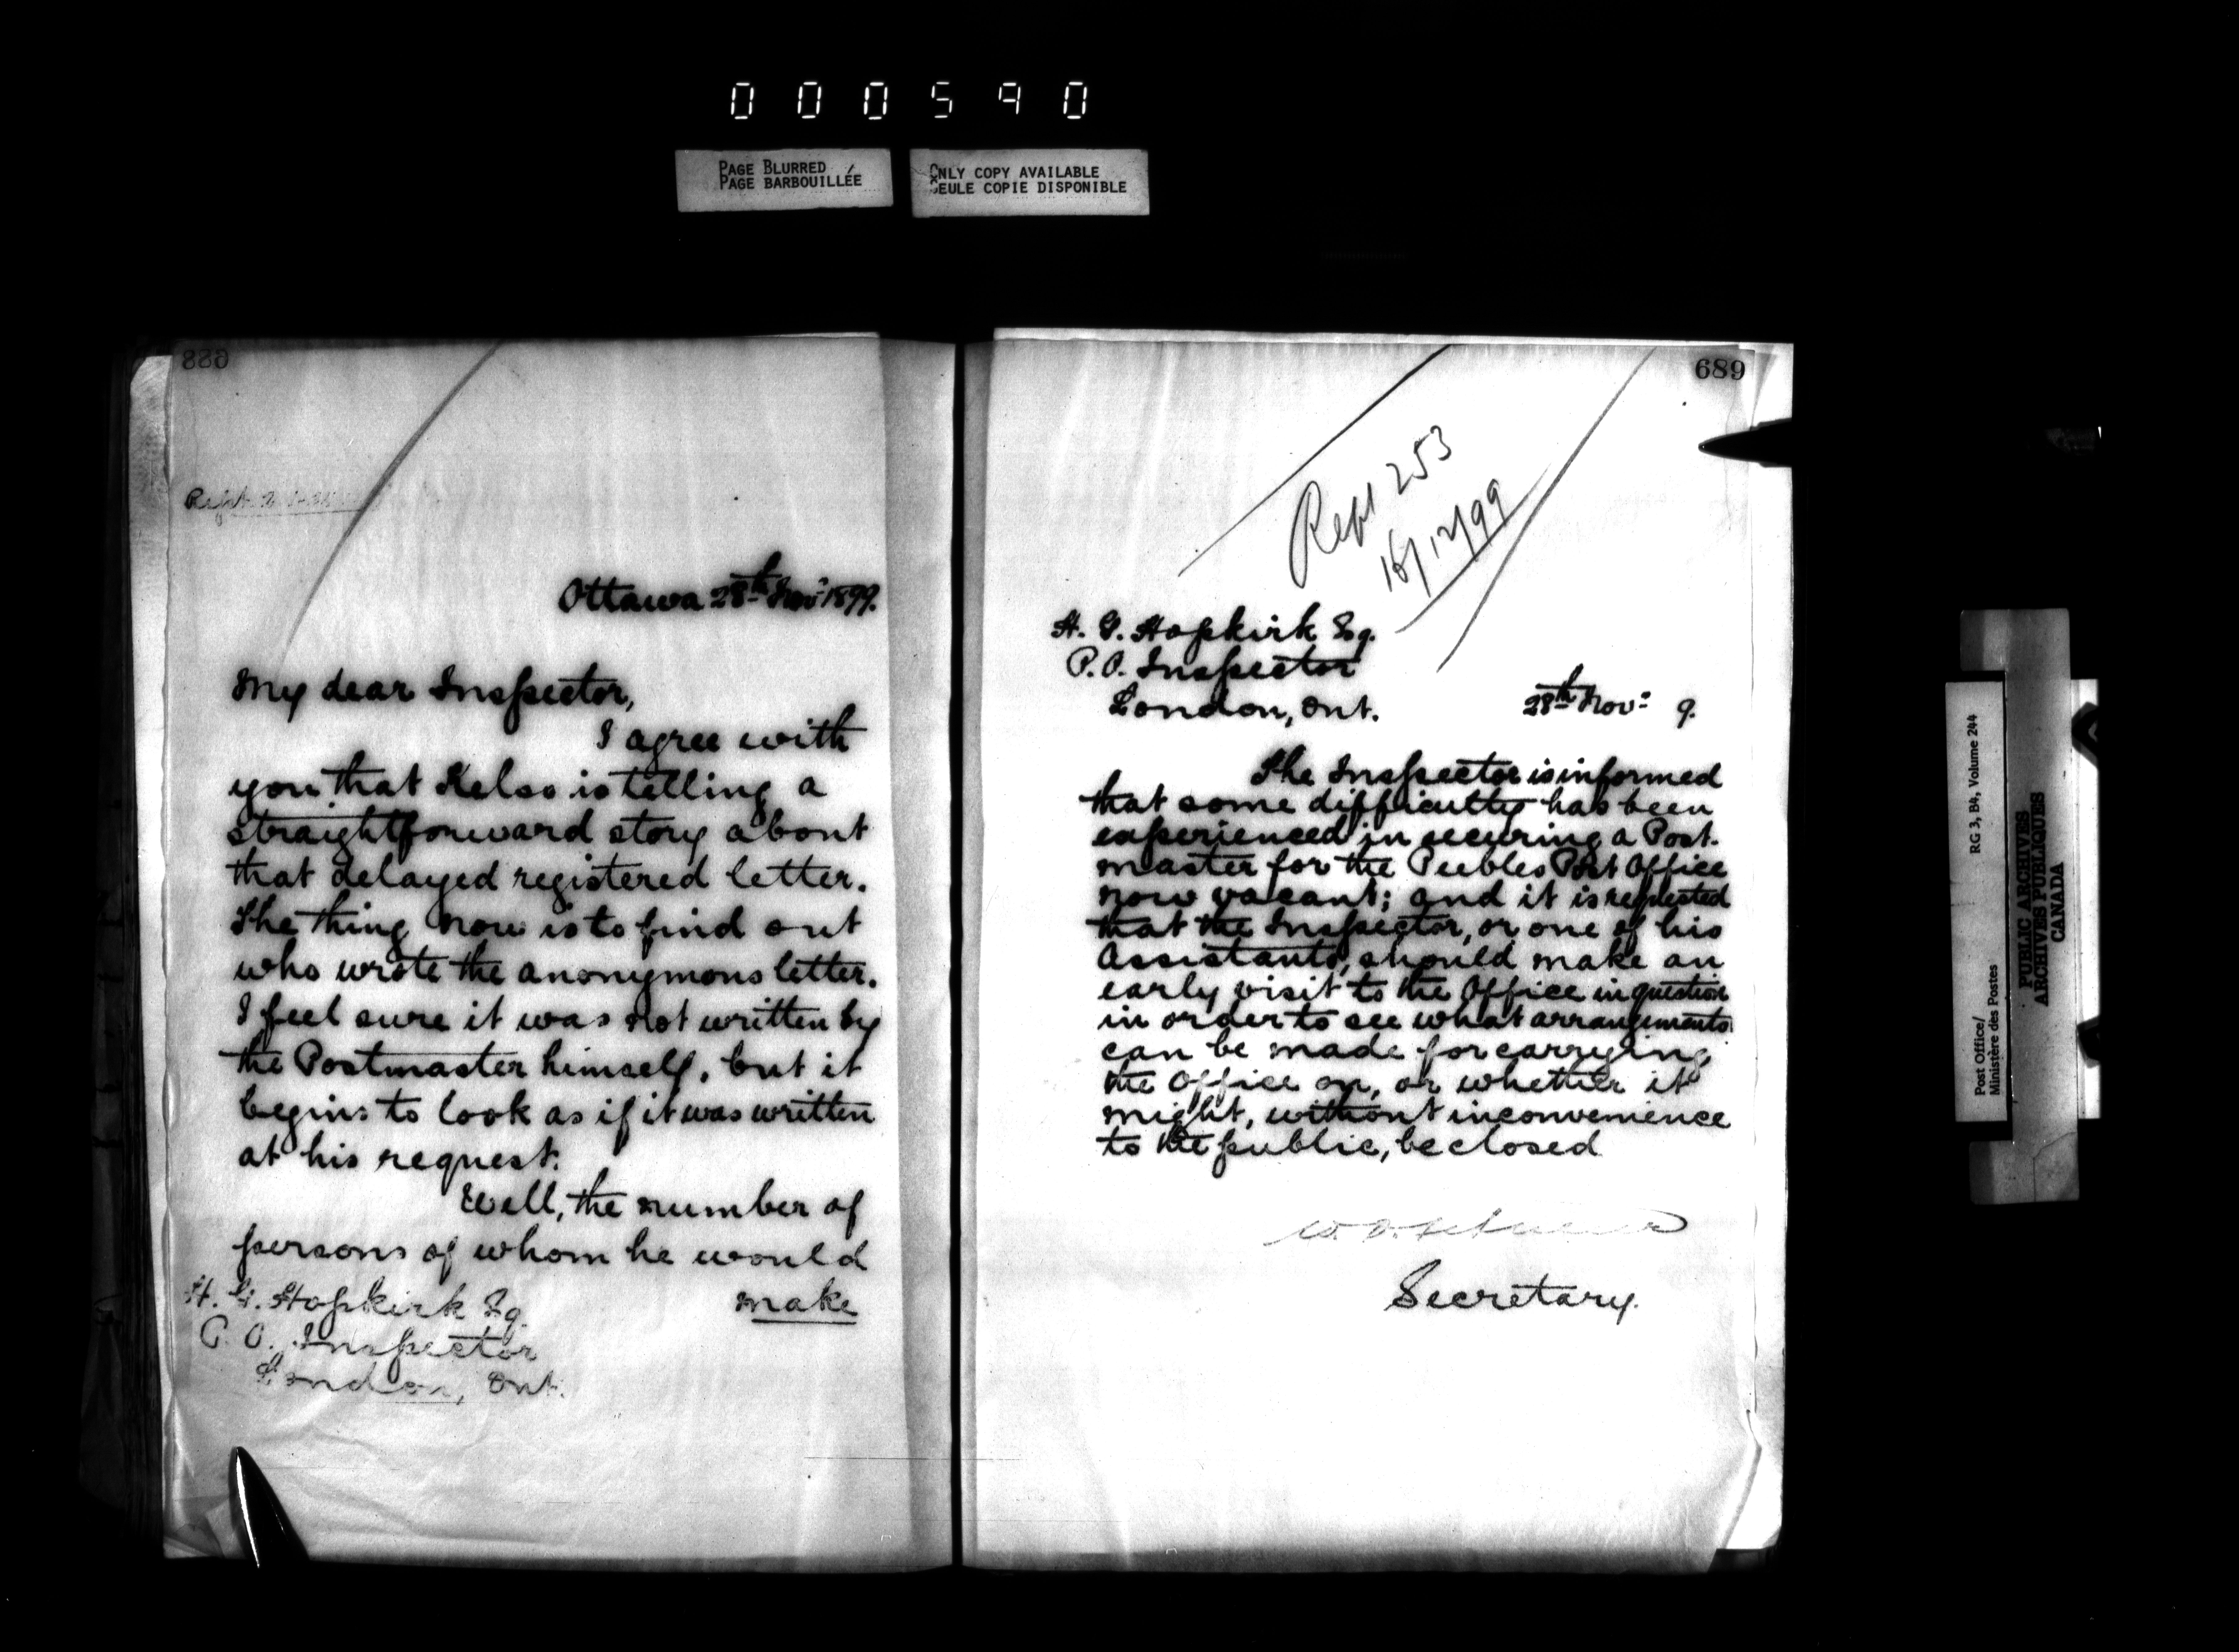 000590
PAGE BLURRED
PAGE BARBOUILLÉE
ONLY COPY AVAILABLE
SEULE COPIE DISPONIBLE
688
Ottawa 28th Nov: 1899.
My dear Inspector,
I agree with
you that Kelso is telling a
straightforward story about
that delayed registered letter.
The thing now is to find out
who wrote the anonymous letter.
I feel sure it was not written by
the Postmaster himself, but it
begins to look as if it was written
at his request.
Well, the number of
persons of whom he would
make
H. G. Hopkirk Esq.
P. O. Inspector
London, Ont.
689
Rept 253
16/12/99
H. G. Hopkirk Esq.
P. O. Inspector
London, Ont.
28th Nov: 9.
The Inspector is informed
that some difficulty has been
experienced in securing a Post-
master for the Peebles Post Office
now vacant; and it is requested
that the Inspector, or one of his
Assistants, should make an
early visit to the Office in question
in order to see what arrangements
can be made for carrying
the Office on, or whether it
might, without inconvenience
to the public, be closed
Secretary.
Post Office/
Ministère des Postes
RG 3, B4, Volume 244
PUBLIC ARCHIVES
ARCHIVES PUBLIQUES
CANADA